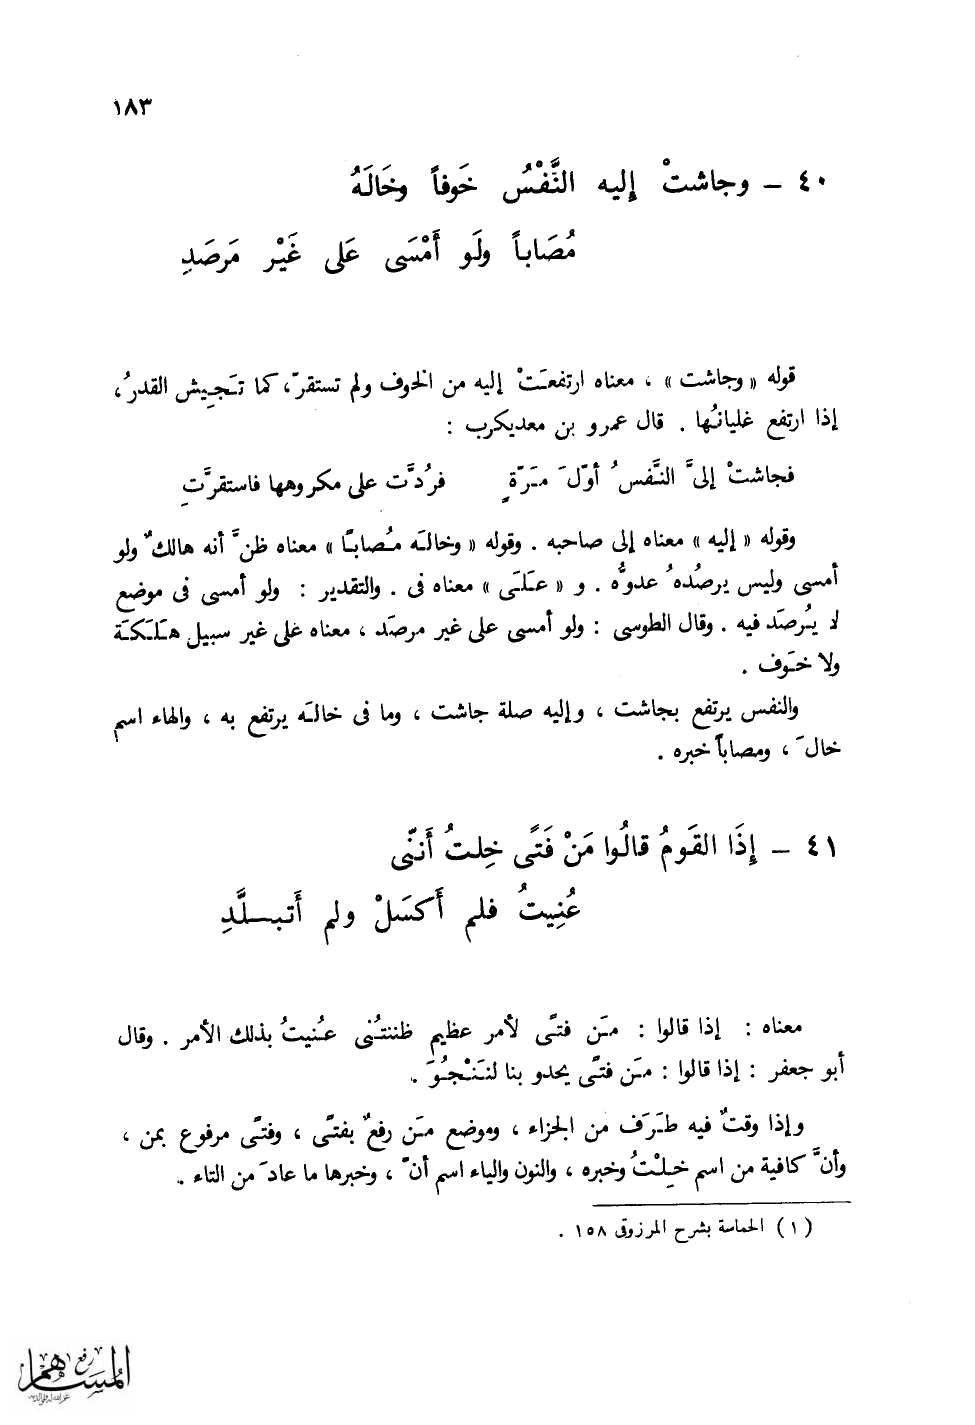 ١٨٣
٤٠ – وجاشتْ إليه النَّفْسُ خَوفاً وخَالَهُ
مُصَاباً ولَو أَمْسَى عَلى غَيْر مَرصَدِ
قوله « وجاشت » ، معناه ارتفعَتْ إليه من الخوف ولم تستقرّ، كما تَجِيش القدرُ ،
إذا ارتفع غليانُها . قال عمرو بن معديكرب :
فجاشتْ إلىَّ النَّفسُ أوّلَ مَرّةٍ فرُدَّت على مكروهها فاستقرَّتِ
وقوله « إليه » معناه إلى صاحبه . وقوله « وخالَه مُصابًا » معناه ظنَّ أنه هالكٌ ولو
أمسى وليس يرصُدهُ عدوُّه . و « عَلَى » معناه فى . والتقدير : ولو أمسى فى موضع
لا يُرصَد فيه . وقال الطوسى : ولو أمسى على غير مرصَد ، معناه على غير سبيل هَلَكَة
ولا خَوف .
والنفس يرتفع بجاشت ، وإليه صلة جاشت ، وما فى خالَه يرتفع به ، والهاء اسم
خالَ ، ومصاباً خبره .
٤١ – إِذَا القَومُ قالُوا مَنْ فَتًى خِلتُ أَننّى
عُنِيتُ فلم أَكسَلْ ولم أَتبــلَّدِ
معناه : إذا قالوا : مَن فتًى لأمر عظيم ظننتُنى عُنيتُ بذلك الأمر . وقال
أبو جعفر : إذا قالوا : مَن فتًى يحدو بنا لنَنْجُوَ .
وإذا وقتٌ فيه طَرَف من الجزاء ، وموضع مَن رفعٌ بفتًى ، وفتًى مرفوع بمن ،
وأنَّ كافية من اسم خِلْتُ وخبره ، والنون والياء اسم أنّ ، وخبرها ما عادَ من التاء .
(١) الحماسة بشرح المرزوقى ١٥٨ .